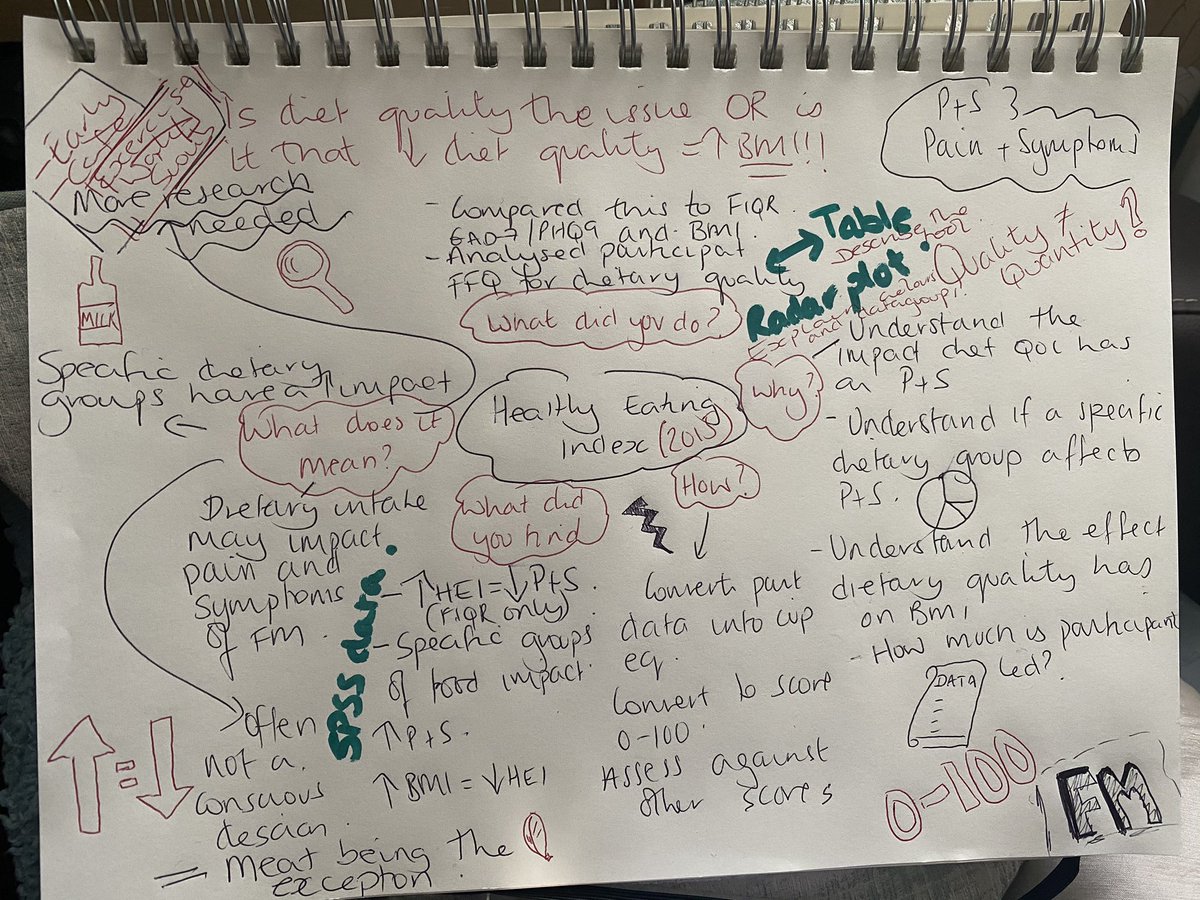 Is diet quality the issue OR is
it that ↓ diet quality = ↑ BMI!!!
P+S }
Pain + Symptoms
More research
needed
- Compared this to FIQR
GAD-7/PHQ9 and BMI
- Analysed participat
FFQ for dietary quality
What did you do?
↔ Table
Describe the
tool
Radar plot.
Explain
and datagroup!
Quality ≠
Quantity?
MILK
Specific dietary
groups have a ↑ impact
←
What does it
mean?
Healthy Eating
Index (2015)
Why?
- Understand the
impact diet QOL has
on P+S
- Understand if a specific
dietary group affects
P+S.
- Understand the effect
dietary quality has
on BMI
- How much is participant
led?
DATA
Dietary intake
may impact
pain and
symptoms
of FM.
SPSS data.
What did
you find
- ↑ HEI = ↓ P+S.
(FIQR only)
- Specific groups
of food impact
↑ P+S.
↑ BMI = ↓ HEI
How?
Convert part
data into cup
eq.
Convert to score
0-100.
Assess against
other scores
often
not a
conscious
descian.
= Meat being the
excepton
↑ = ↓
0-100
FM